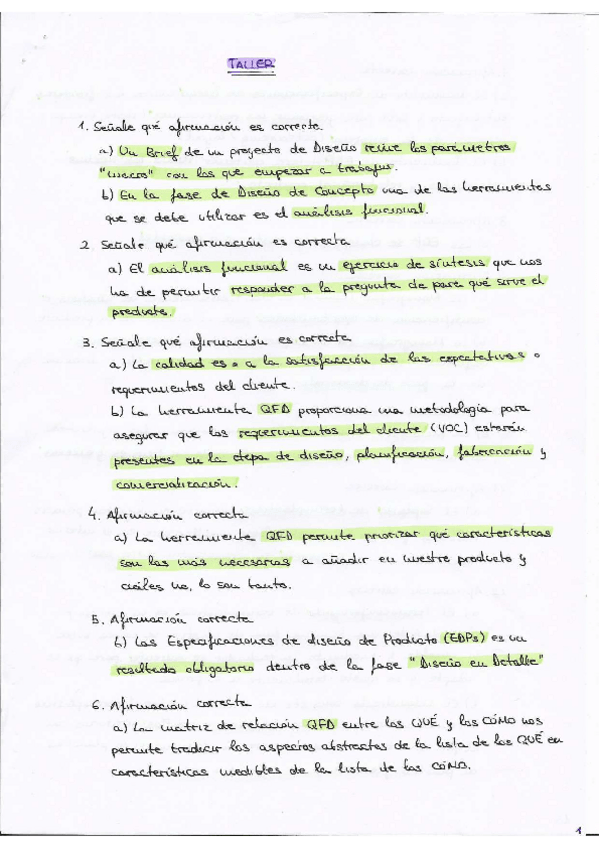 TALLER
1. Señale qué afirmación es correcta.
a) Un Brief de un proyecto de Diseño reúne los parámetros
"macro" con los que empezar a trabajar.
b) En la fase de Diseño de Concepto una de las herramientas
que se debe utilizar es el análisis funcional.
2. Señale qué afirmación es correcta
a) El análisis funcional es un ejercicio de síntesis que nos
ha de permitir responder a la pregunta de para qué sirve el
producto.
3. Señale qué afirmación es correcta
a) La calidad es = a la satisfacción de las expectativas o
requerimientos del cliente.
b) La herramienta QFD proporciona una metodología para
asegurar que los requerimientos del cliente (VOC) estarán
presentes en la etapa de diseño, planificación, fabricación y
comercialización.
4. Afirmación correcta
a) La herramienta QFD permite priorizar qué características
son las más necesarias a añadir en nuestro producto y
cuáles no, lo son tanto.
5. Afirmación correcta
b) Las Especificaciones de diseño de Producto (EDPs) es un
resultado obligatorio dentro de la fase "Diseño en Detalle"
6. Afirmación correcta
a) La matriz de relación QFD entre los QUÉ y los CÓMO nos
permite traducir los aspectos abstractos de la lista de los QUÉ en
características medibles de la lista de los CÓMO.
1